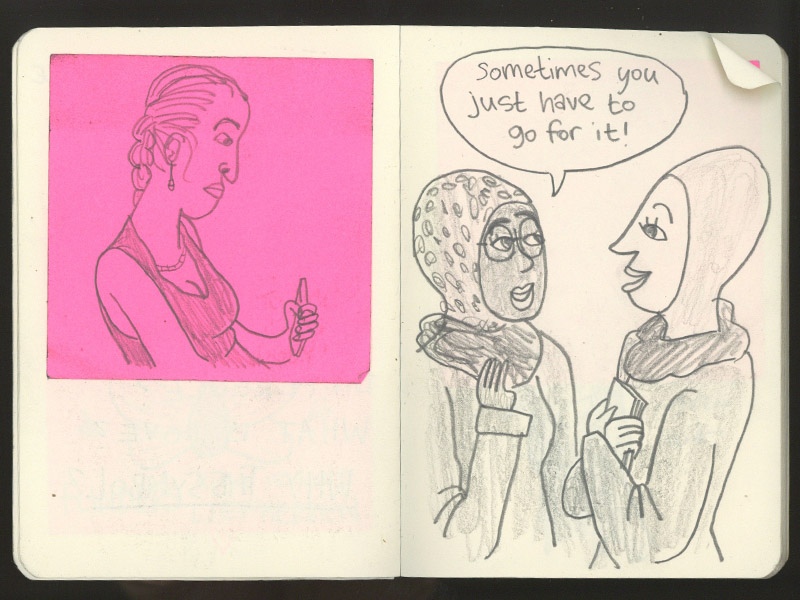 sometimes you
just have to
go for it!